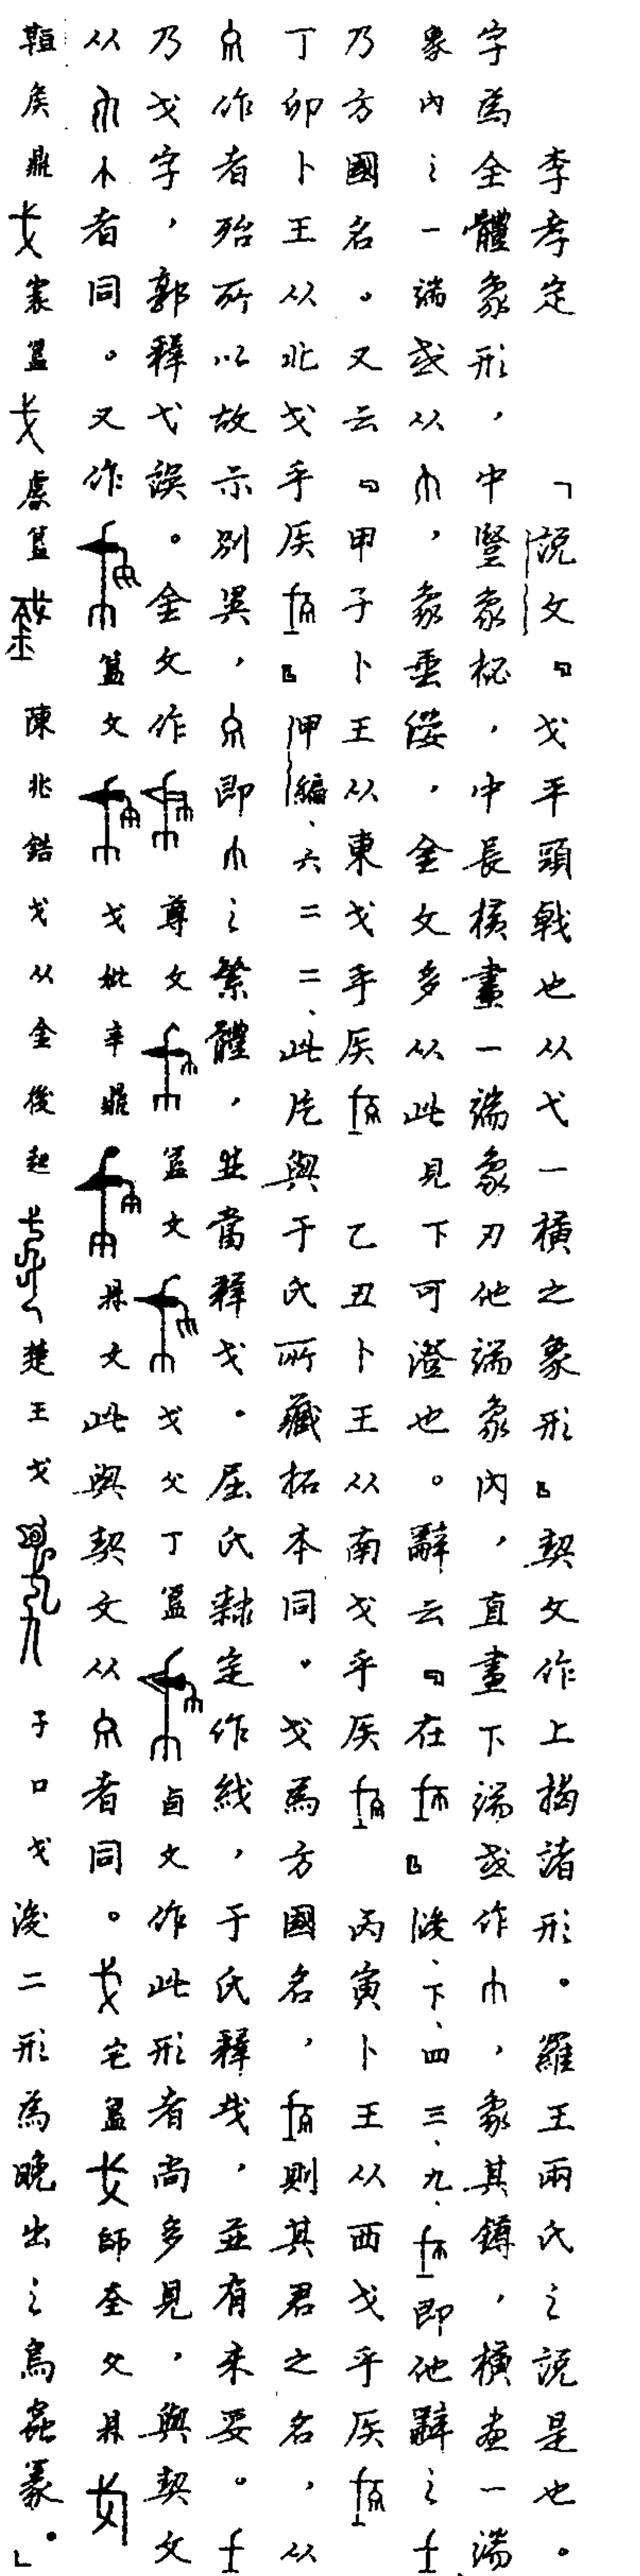 李孝定　「說文『戈平頭戟也从弋一橫之象形』契文作上揭諸形。羅王兩氏之說是也。
字為全體象形，中豎象柲，中長橫畫一端象刃他端象內，直畫下端或作，象其鐏，橫畫一端
象內之一端或从，象垂緌，金文多从此見下可證也。辭云『在』後、下、四三、九、即他辭之
乃方國名。又云『甲子卜王从東戈乎侯　乙丑卜王从南戈乎侯　丙寅卜王从西戈乎侯
丁卯卜王从北戈乎侯』甲編、六二二、此片與于氏所藏拓本同。戈為方國名，則其君之名，从
作者殆所以故示別異，即之繁體，並當釋戈。屈氏隸定作，于氏釋，並有未妥。
乃戈字，郭釋弋誤。金文作　尊文　簋文　戈父丁簋　卣文作此形者尚多見，與契文
从者同。又作　簋文　戈妣辛鼎　鼎文此與契文从者同。　宅簋　師奎父鼎
䡅侯鼎　㝨簋　虘簋　陳兆鋯戈从金後起　楚王戈　子口戈後二形為晚出之鳥蟲篆。」